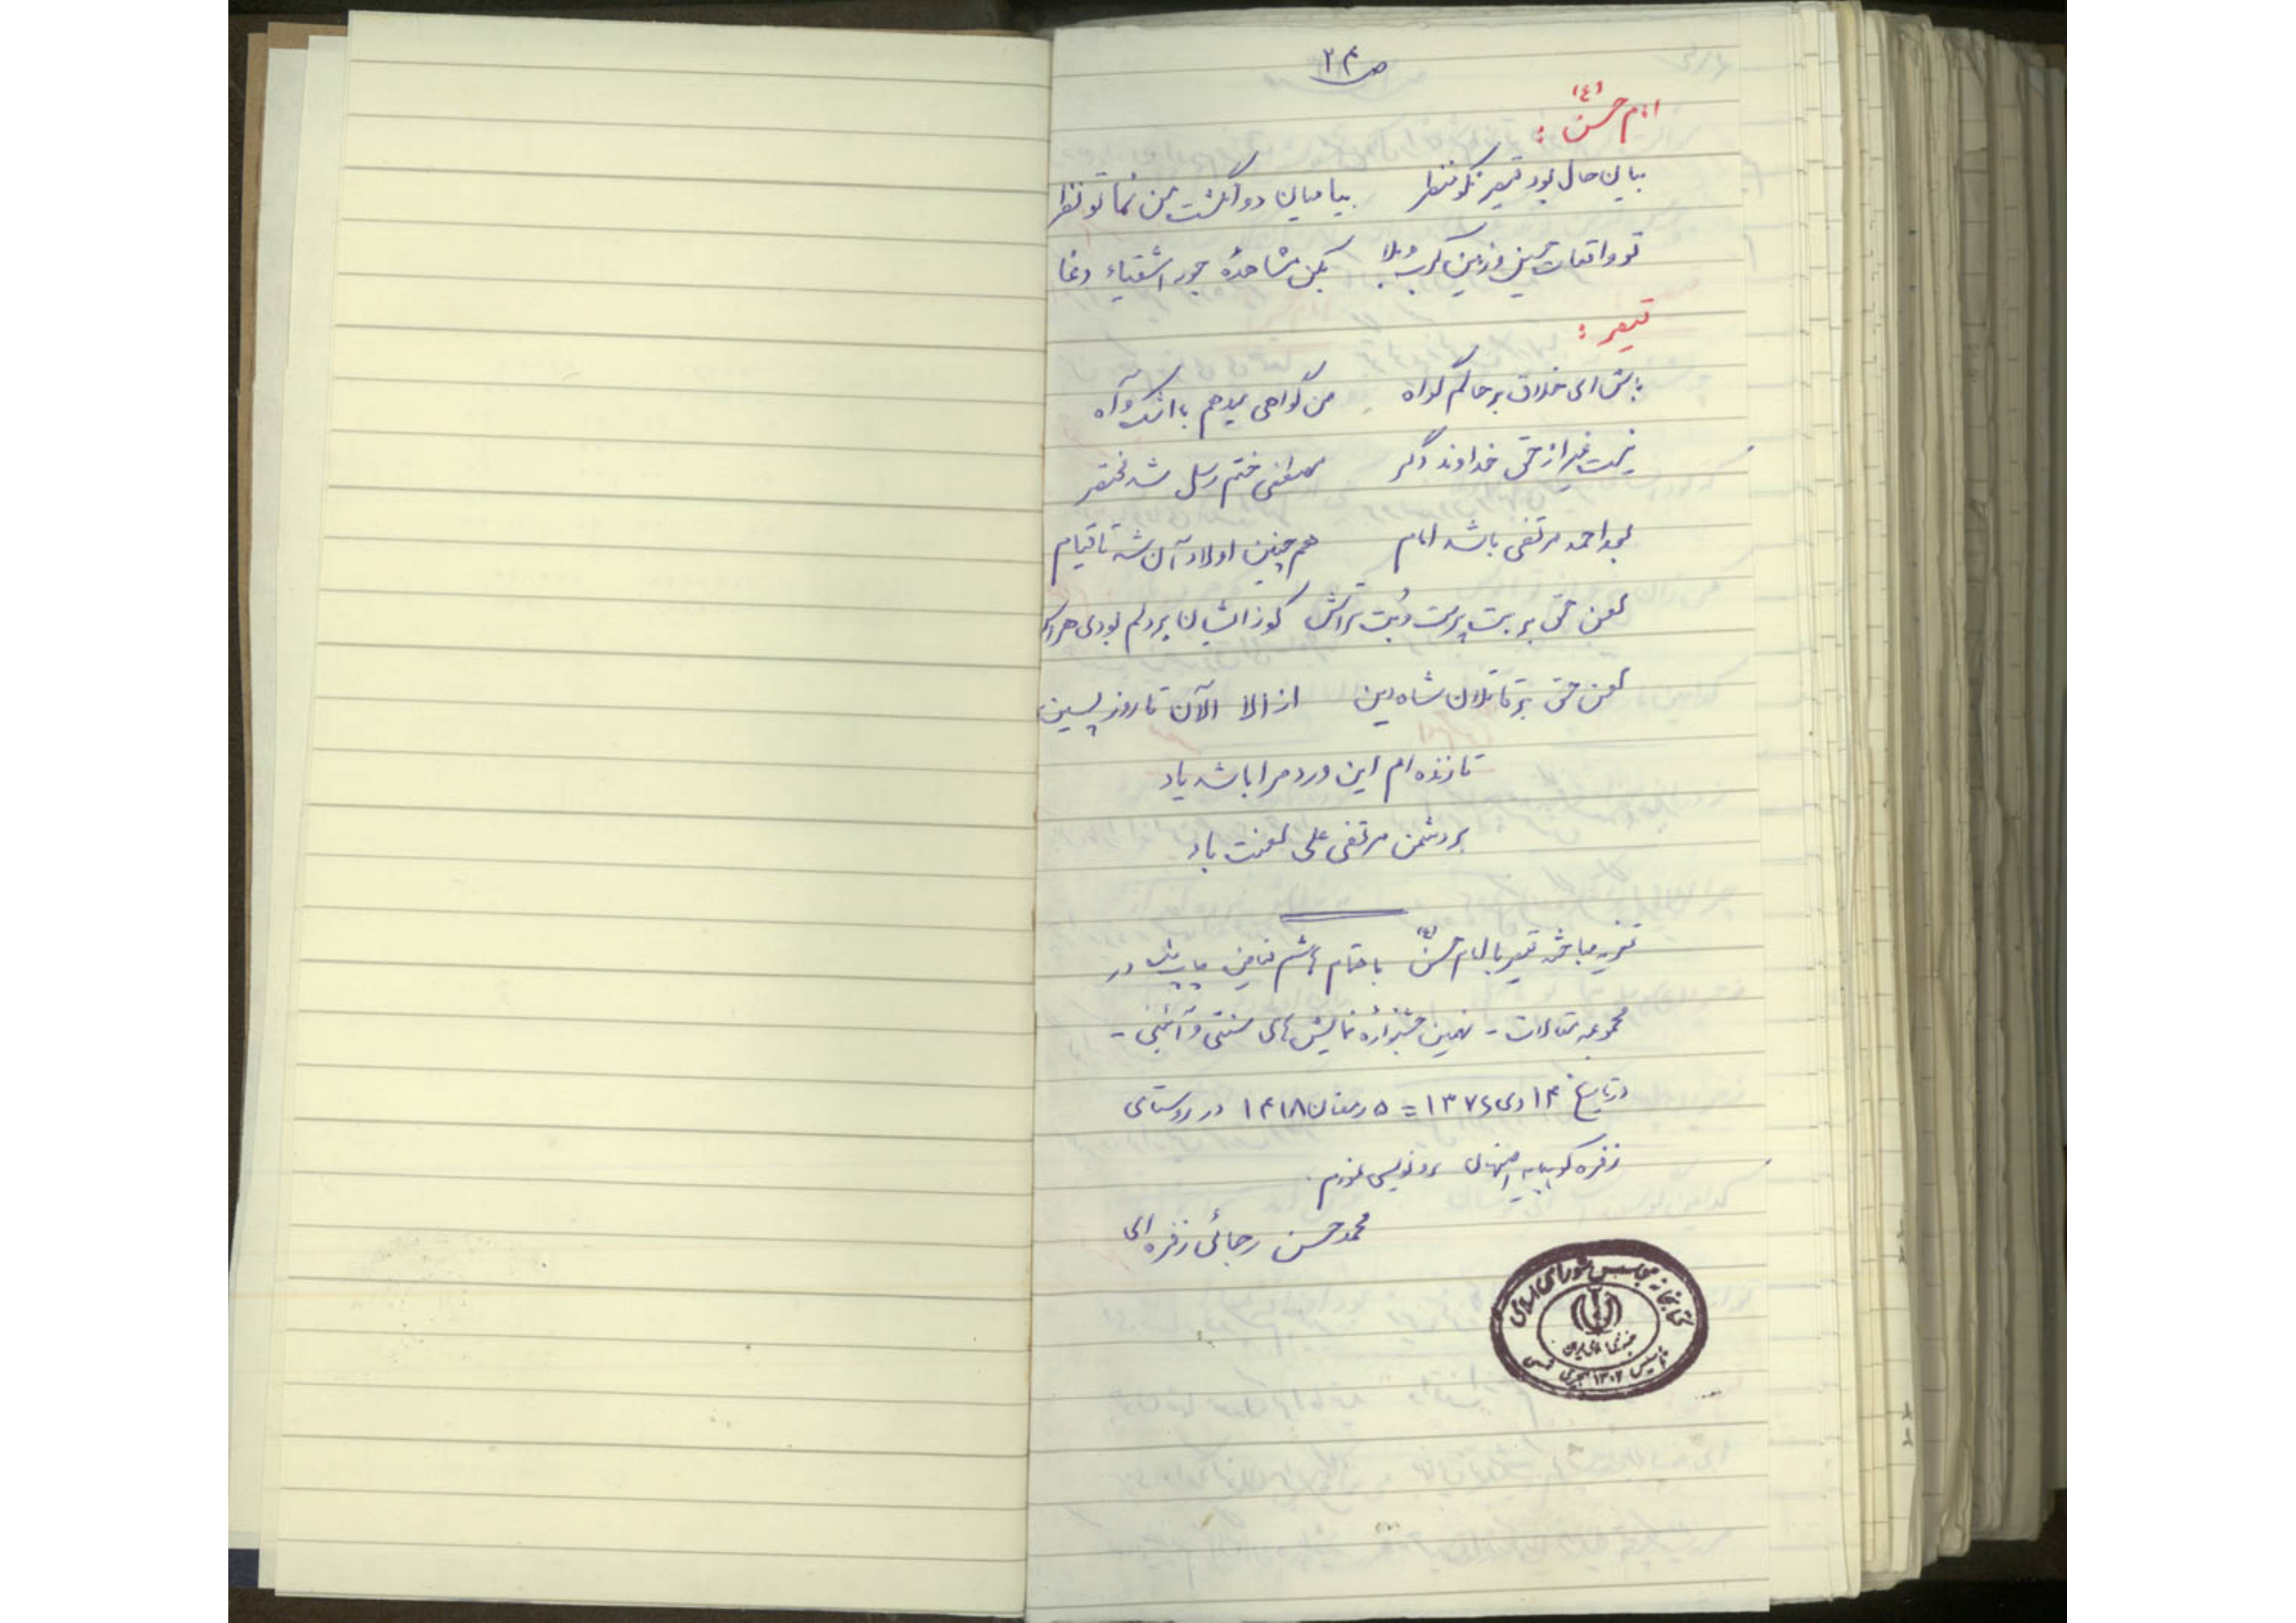 ص ۲۴
امام حسن (ع) :
بیا میان دو انگشت من نما تو نظر
تو واقعات حسین و زمین کرب و بلا بکن مشاهدهٔ جور اشقیاء دغا
قیصر :
باش ای خلاق بر حالم گواه من گواهی میدهم با اشک و آه
نیست غیر از حق خداوند دگر مصطفی ختم رسل شد مختصر
بعد احمد مرتضی باشد امام هم چنین اولاد آن شه تا قیام
لعن حق بر بت پرست و بت تراش کوز ایشان بر دلم بودی
لعن حق بر قاتلان شاه دین از الا الآن تا روز پسین
تا زنده ام این ورد مرا باشد یاد
بر دشمن مرتضی علی لعنت باد
تعزیه مباحثه قیصر با امام حسن (ع) باهتمام هاشم فیاض چاپ شده در
مجموعه مقالات - نهمین جشنوارهٔ نمایش های سنتی و آئینی -
در تاریخ ۱۴ دی ۱۳۷۶ = ۵ رمضان ۱۴۱۸ در روستای
زفره کوهپایه اصفهان رونویسی نمودم.
محمد حسن رجائی زفره ای
کتابخانه مجلس شورای اسلامی
جمهوری اسلامی ایران
تاسیس ۱۳۰۲ هجری شمسی